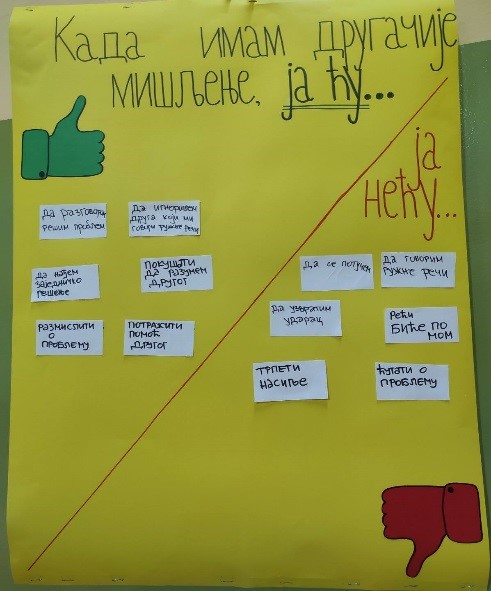 Када имам другачије
мишљење, ја ћу...
ја
нећу...
да разговором
решим проблем
да игноришем
друга који ми
говори ружне речи
да нађем
заједничко
решење
покушати
да разумем
другог
размислити
о
проблему
потражити
помоћ
другог
да се потучем
да говорим
ружне речи
да узвратим
ударац
рећи
биће по
мом
трпети
насиље
ћутати о
проблему